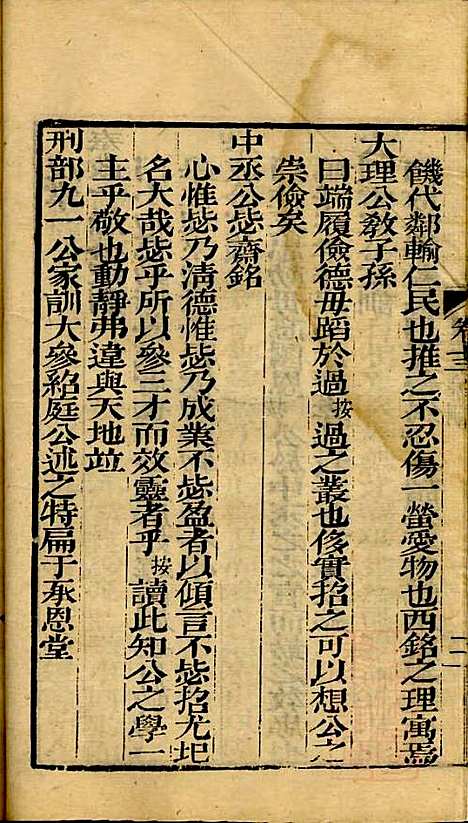 饑代鄰輸仁民也推之不忍傷一螢愛物也西銘之理寓焉
大理公敎子孫
曰端履儉德毋蹈於過按過之叢也侈實招之可以想公之
崇儉矣
中丞公毖齋銘
心惟毖乃清德惟毖乃成業不毖盈者以傾言不毖招尤圯
名大哉毖乎所以參三才而效靈者乎按讀此知公之學一
主乎敬也動靜弗違與天地竝
刑部九一公家訓大參紹庭公述之特扁于承恩堂
卷十三